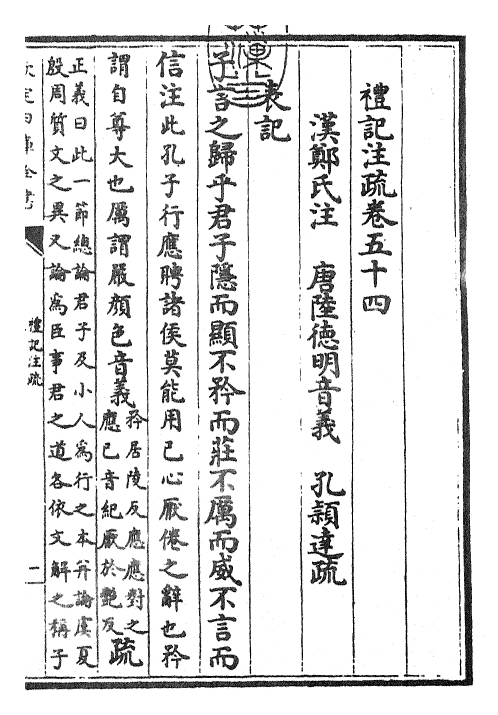 禮記注疏卷五十四
漢鄭氏注　唐陸德明音義　孔穎達疏
表記
子言之歸乎君子隱而顯不矜而莊不厲而威不言而
信注此孔子行應聘諸侯莫能用已心厭倦之辭也矜
謂自尊大也厲謂嚴顏色音義矜居陵反應應對之
應已音紀厭於艷反疏
正義曰此一節總論君子及小人為行之本并論虞夏
殷周質文之異又論為臣事君之道各依文解之稱子
欽定四庫全書
禮記注疏
一